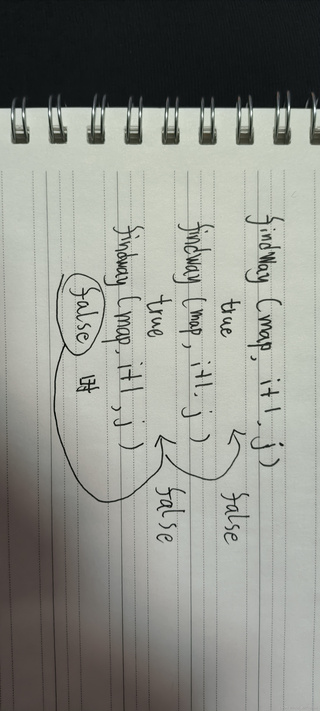 findway (map, i+1, j)
true false
findway (map, i+1, j)
true false
findway (map, i+1, j)
false 时